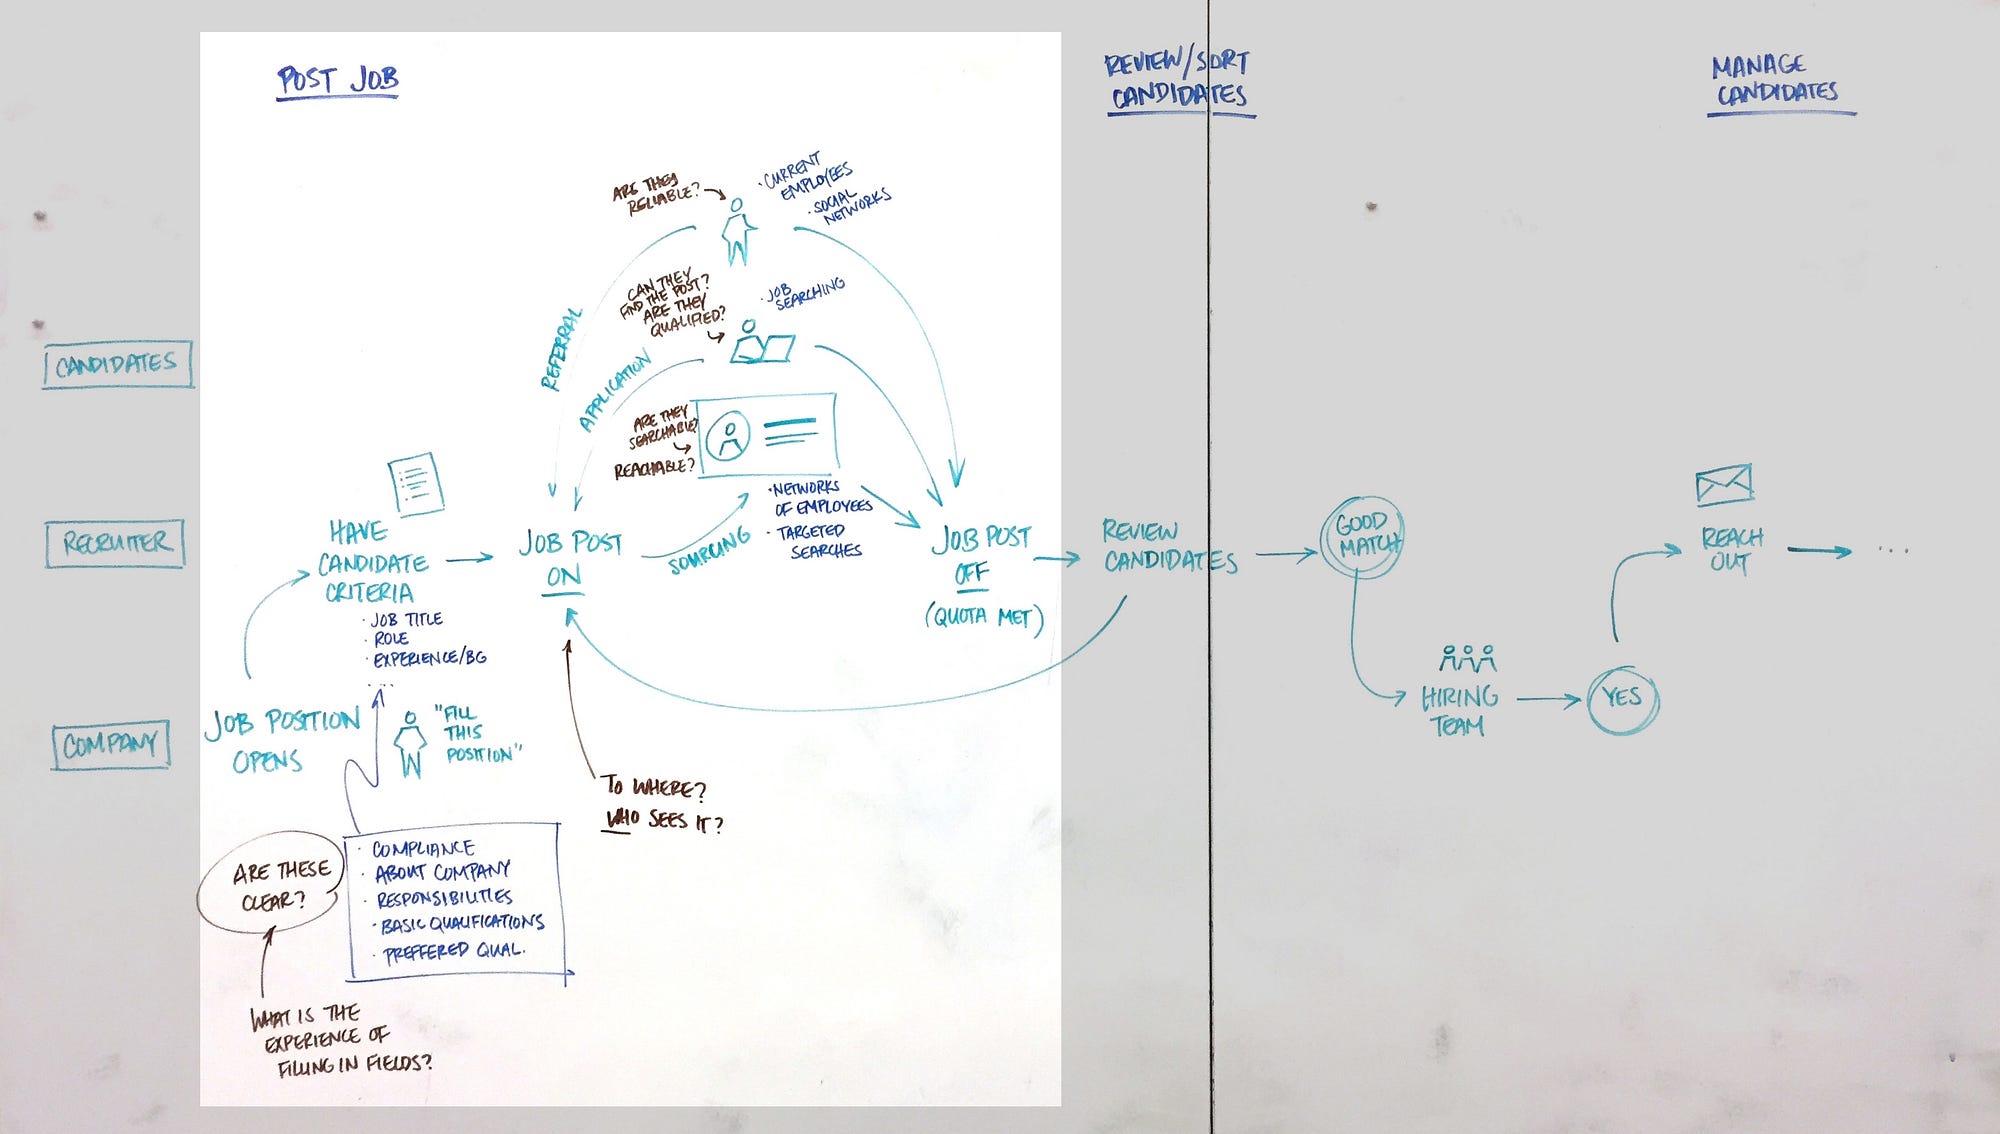 POST JOB
REVIEW/SORT
CANDIDATES
MANAGE
CANDIDATES
ARE THEY
RELIABLE?
· CURRENT
EMPLOYEES
· SOCIAL
NETWORKS
CAN THEY
FIND THE POST?
ARE THEY
QUALIFIED?
· JOB
SEARCHING
REFERRAL
APPLICATION
CANDIDATES
ARE THEY
SEARCHABLE?
REACHABLE?
· NETWORKS
OF EMPLOYEES
· TARGETED
SEARCHES
RECRUITER
HAVE
CANDIDATE
CRITERIA
· JOB TITLE
· ROLE
· EXPERIENCE/BG
...
JOB POST
ON
SOURCING
JOB POST
OFF
(QUOTA MET)
REVIEW
CANDIDATES
GOOD
MATCH
REACH
OUT
...
COMPANY
JOB POSITION
OPENS
"FILL
THIS
POSITION"
HIRING
TEAM
YES
TO WHERE?
WHO SEES IT?
ARE THESE
CLEAR?
· COMPLIANCE
· ABOUT COMPANY
· RESPONSIBILITIES
· BASIC QUALIFICATIONS
· PREFFERED QUAL.
WHAT IS THE
EXPERIENCE OF
FILLING IN FIELDS?